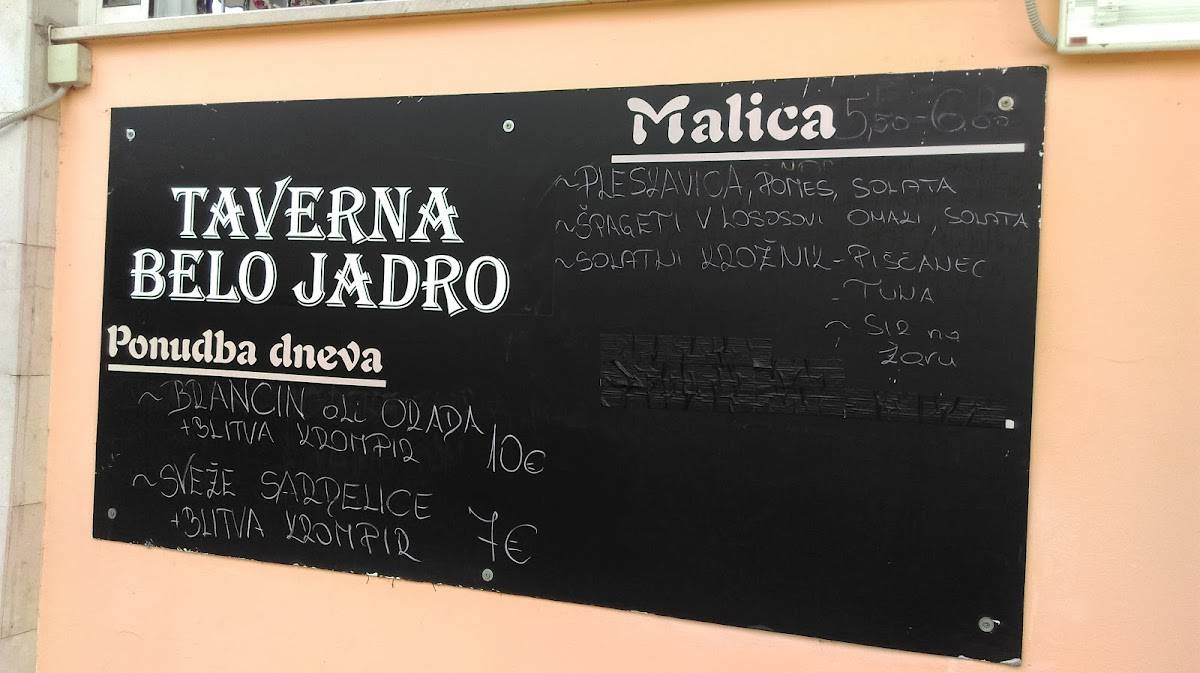 TAVERNA
BELO JADRO
Ponudba dneva
~BRANCIN ali ORADA
+BLITVA KROMPIR 10€
~SVEŽE SARDELICE
+BLITVA KROMPIR 7€
Malica 5,50-6.80
~PLESKAVICA, POMES, SOLATA
~ŠPAGETI V LOSOSOVI OMAKI, SOLATA
~SOLATNI KROŽNIK-PIŠČANEC
-TUNA
~ SIR na
žaru